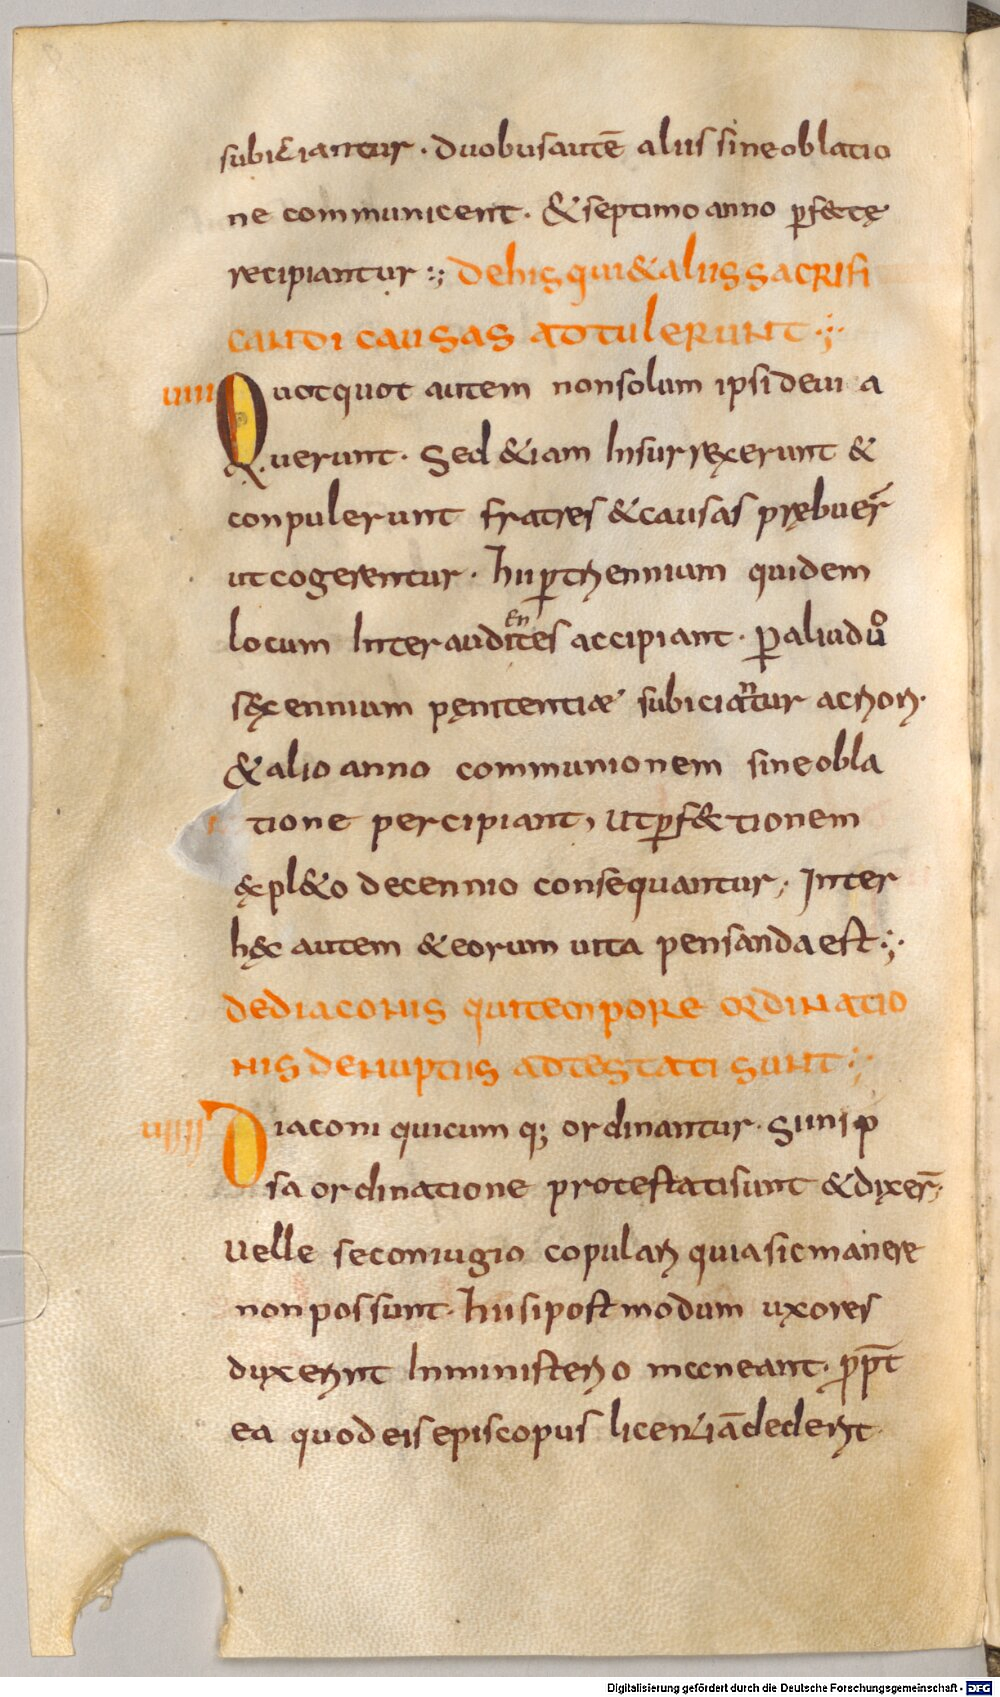 subiciantur · duobus autē aliis sine oblatio
ne communicent · & septimo anno ꝑf&tę
recipiantur :; de his qui & aliis sacrifi
candi causas adtulerunt :;
VIIII Quotquot autem non solum ipsi devia
verunt · Sed &iam Insurrexerunt &
conpulerunt fratres & causas prębuer̄
ut cogerentur · hii ꝑ triennium quidem
locum Inter audi(en)tes accipiant · ꝑ aliud ů
sęcennium pęnitentiæ subicia(n)tur acriori ·
& alio anno communionem sine obla
tione percipiant, ut ꝑf&tionem
ępl&o decennio consequantur; Inter
hęc autem & eorum vita pensanda est :;
de diaconis qui tempore ordinatio
nis de nuptiis adtestati sunt :;
VIIIII Diaconi quicum q; ordinantur · Si in ip
sa ordinatione protestati sunt & dixer̄;
velle se coniugio copulari quia sic manere
non possunt · hii si postmodum uxores
duxerint In ministerio maneant · ꝓpt̄
ea quod eis episcopus licentiā dederit ·
Digitalisierung gefördert durch die Deutsche Forschungsgemeinschaft - DFG